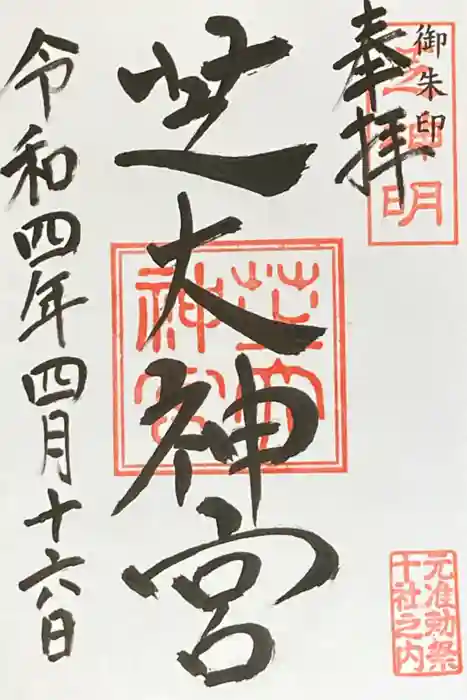 御朱印
奉拝
芝神明
元准勅祭
十社之内
芝大神宮
芝大
神宮
令和四年四月十六日